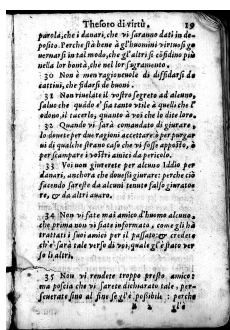 Thesoro di virtù. 19
parola, che i danari, che vi saranno dati in de-
posito. Perche stà bene à gl'huomini virtuosi go
uernarsi in tal modo, che gl'altri si cōfidino più
nella lor bontà, che nel lor sagramento.
30 Non è men ragioneuole di diffidarsi de
cattiui, che fidarsi de buoni.
31 Non riuelate il vostro segreto ad alcuno,
saluo che quādo e' sia tanto vtile à quelli che l'
odono, il tacerlo, quanto à voi che lo dite loro.
32 Quando vi sarà comandato di giurare,
lo douete per due ragioni accettare: ò per purgar
ui di qualche strano caso che vi fosse apposto, ò
per scampare i vostri amici da pericolo.
33 Voi non giurerete per alcuno Iddio per
danari, anchora che douessi giurare: perche ciò
facendo sareste da alcuni tenuto falso giurator
re, & da altri auaro.
34 Non vi fate mai amico d'huomo alcuno,
che prima non vi siate informato, come gli hà
trattati i suoi amici per il passato: & credete
ch'e' sarà tale verso di voi, quale gl'è stato ver
so li altri.
35 Non vi rendete troppo presto amico:
ma poscia che vi sarete dichiarato tale, per-
seuerate sino al fine se gl'è possibile: perche